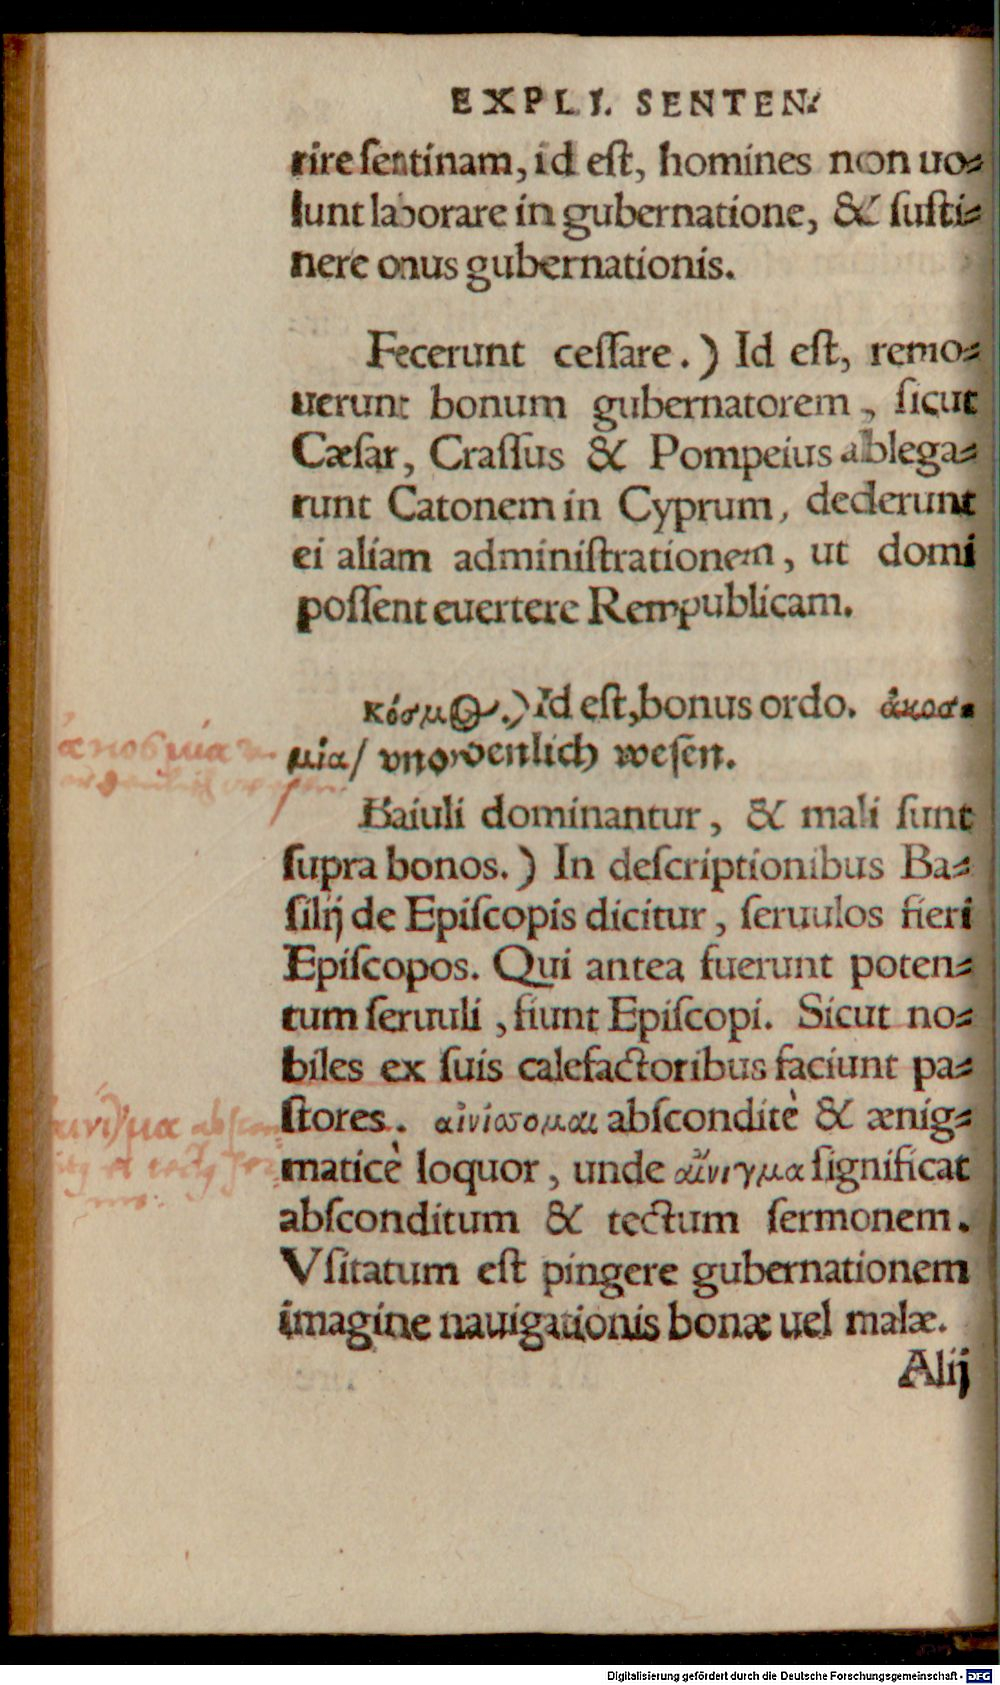 EXPLI. SENTEN.
rire sentinam, id est, homines non uo⸗
lunt laborare in gubernatione, & susti⸗
nere onus gubernationis.
Fecerunt cessare.) Id est, remo⸗
uerunt bonum gubernatorem, sicut
Cæsar, Crassus & Pompeius ablega⸗
runt Catonem in Cyprum, dederunt
ei aliam administrationem, ut domi
possent euertere Rempublicam.
κόσμος.) Id est, bonus ordo. ἀκοσ⸗
μία/ vnordenlich wesen.
ἀκοσμία vn⸗
ordenlich wesen
Baiuli dominantur, & mali sunt
supra bonos.) In descriptionibus Ba⸗
silij de Episcopis dicitur, seruulos fieri
Episcopos. Qui antea fuerunt poten⸗
tum seruuli, fiunt Episcopi. Sicut no⸗
biles ex suis calefactoribus faciunt pa⸗
stores. αἰνίσσομαι absconditè & ænig⸗
maticè loquor, unde αἴνιγμα significat
absconditum & tectum sermonem.
Vsitatum est pingere gubernationem
imagine nauigationis bonæ uel malæ.
αἴνιγμα abscon⸗
et
Alij
Digitalisierung gefördert durch die Deutsche Forschungsgemeinschaft - DFG